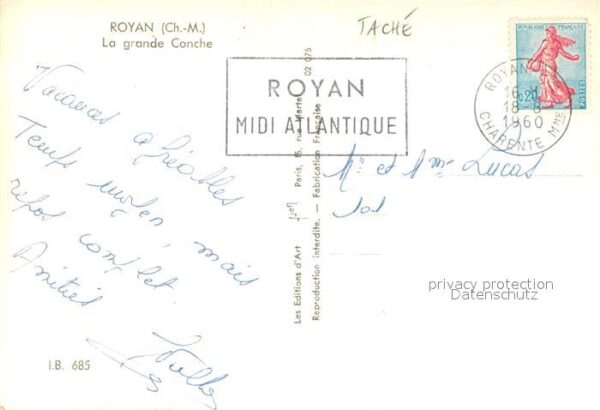 ROYAN (Ch.-M.)
La grande Conche
TACHÉ
ROYAN
MIDI ATLANTIQUE
RÉPUBLIQUE FRANÇAISE
0,20
POSTES
ROYAN
16 H
18-8
1960
CHARENTE Mme
Vacances agréables
Temps moyen, mais
repos complet.
Amitiés
Mr et Mme Lucas
Les Editions d'Art
Paris, 15, rue Martel
02 075
Reproduction interdite. - Fabrication Française
I.B. 685
privacy protection
Datenschutz